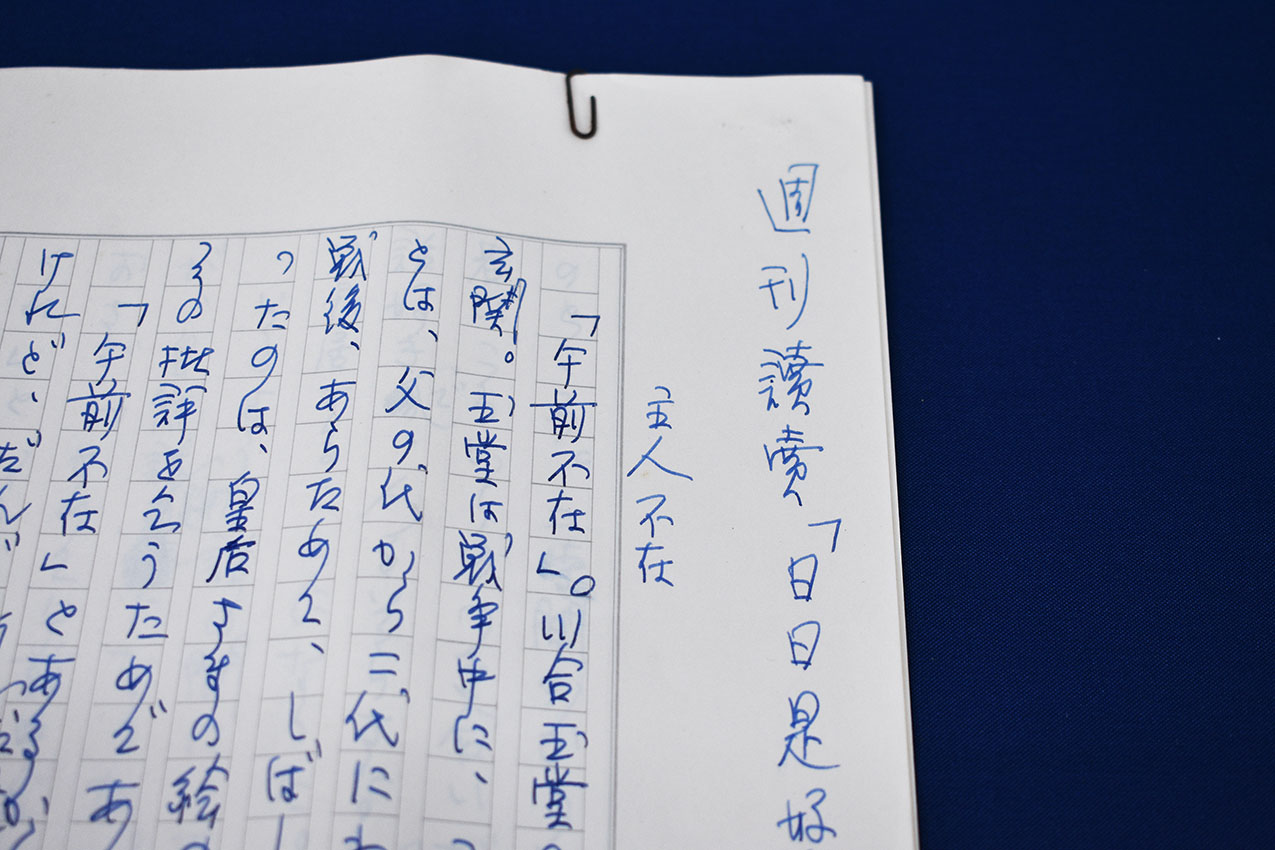 週刊讀賣「日日是好
主人不在
「午前不在」。川合玉堂
玄関。玉堂は戦争中に、
とは、父の代から二代にわ
戦後、あらためて、しばし
ったのは、皇后さまの絵
の批評を乞うためであ
「午前不在」とある
けれど、だん